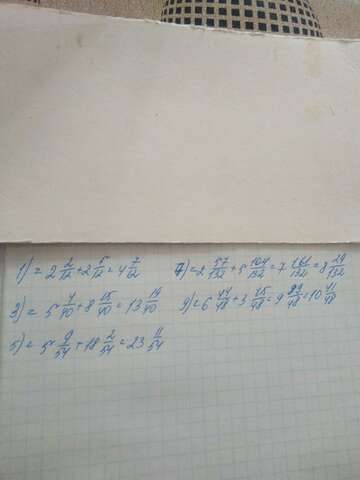 1) = 2 2/12 + 2 5/12 = 4 7/12 7) = 2 57/132 + 5 104/132 = 7 161/132 = 8 29/132
3) = 5 4/40 + 8 15/40 = 13 19/40 9) = 6 44/48 + 3 45/48 = 9 89/48 = 10 41/48
5) = 5 9/54 + 18 2/54 = 23 11/54